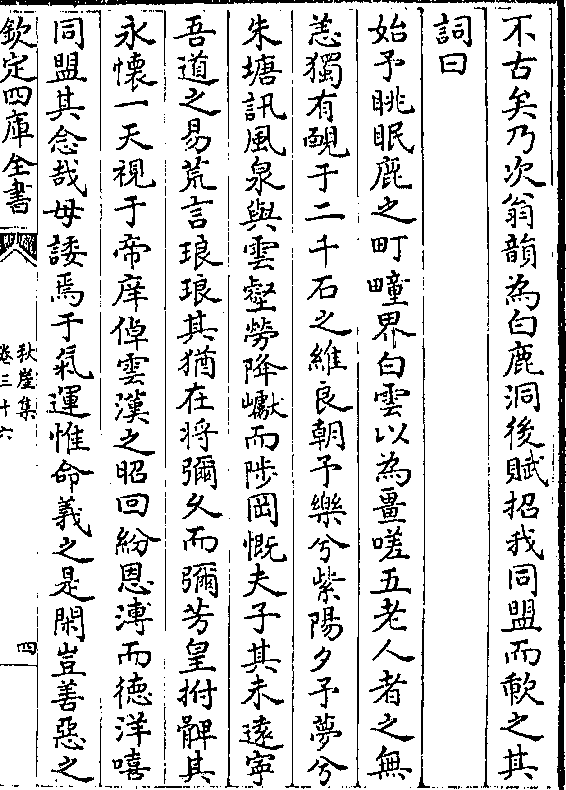 不古矣乃次翁韻為白鹿洞後賦招我同盟而歌之其
詞曰
始予眺眠鹿之町疃界白雲以為畺嗟五老人者之無
恙獨有靦于二千石之維良朝予樂兮紫陽夕予夢兮
朱塘訊風泉與雲壑勞降巘而陟岡慨夫子其未遠寧
吾道之易荒言琅琅其猶在将彌乆而彌芳皇拊髀其
永懐一天視于帝庠倬雲漢之昭回紛恩溥而徳洋嘻
同盟其念哉毋諉焉于氣運惟命義之是閑豈善惡之
欽定四庫全書
秋崖集
卷三十六
四